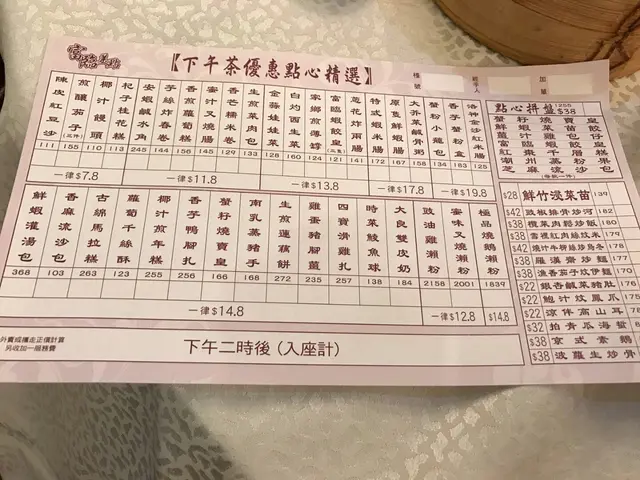 【下午茶優惠點心精選】
陳皮紅豆沙 111
煎釀茄子(三件) 155
椰汁饅頭 110
杞子桂花糕 113
安蝦鹹水角 245
芋絲炸春卷 144
香煎蘿蔔糕 156
蜜汁叉燒腸 145
香芒糯米卷 129
生煎菜肉包 133
金蒜蛙娃菜 128
白灼西生菜 160
家鄉煎薄罉 124
富臨蝦餃皇 121
蔥花炸兩腸 141
特式蝦米腸 142
原隻鮮蝦腸 172
大芥菜鹹骨粥 167
蟹粉小籠包 158
香芋蟹粉盒 134
洛神金沙紅米腸 183
125
一律$7.8
一律$11.8
一律$13.8
一律$17.8
一律$19.8
鮮蝦灌湯包 368
香麻流沙包 103
古綿馬拉糕 263
蘿蔔千絲酥 123
椰汁年糕 255
香芋鴨腳扎 256
蟹籽燒賣皇 166
南乳蒸豬手 168
生煎蓮藕餅 272
雞蛋豬腳薑 235
四寶滑雞扎 257
時菜鯪魚球 138
大良雙皮奶 184
豉油雞瀨粉 2158
蜜味叉燒瀨粉 2001
極品燒鵝瀨粉 1839
一律$14.8
一律$12.8
$14.8
下午二時後 (入座計)
外賣或攜走正價計算
另收加一服務費
點心拼盤 1255 $38
蟹籽燒賣皇
鮮蝦菜苗餃
富臨蝦餃仔
紅棗千層糕
潮州蒸粉果
芝麻流沙包
(每款一件)
$28 鮮竹浸菜苗 139
$42 豉椒排骨炒河 182
$38 欖菜肉鬆炒飯 180
$38 雪裡紅肉絲炆米 179
$42 燒汁牛柳絲炒烏冬 178
$38 羅漢齋炒麵
$38 漁香茄子炆伊麵 170
$22 銀杏鹹菜豬肚
$22 鮑汁炆鳳爪
$22 涼伴雲耳
$32 拍青瓜海蜇
$38 京式素鵝
$38 波蘿生炒骨